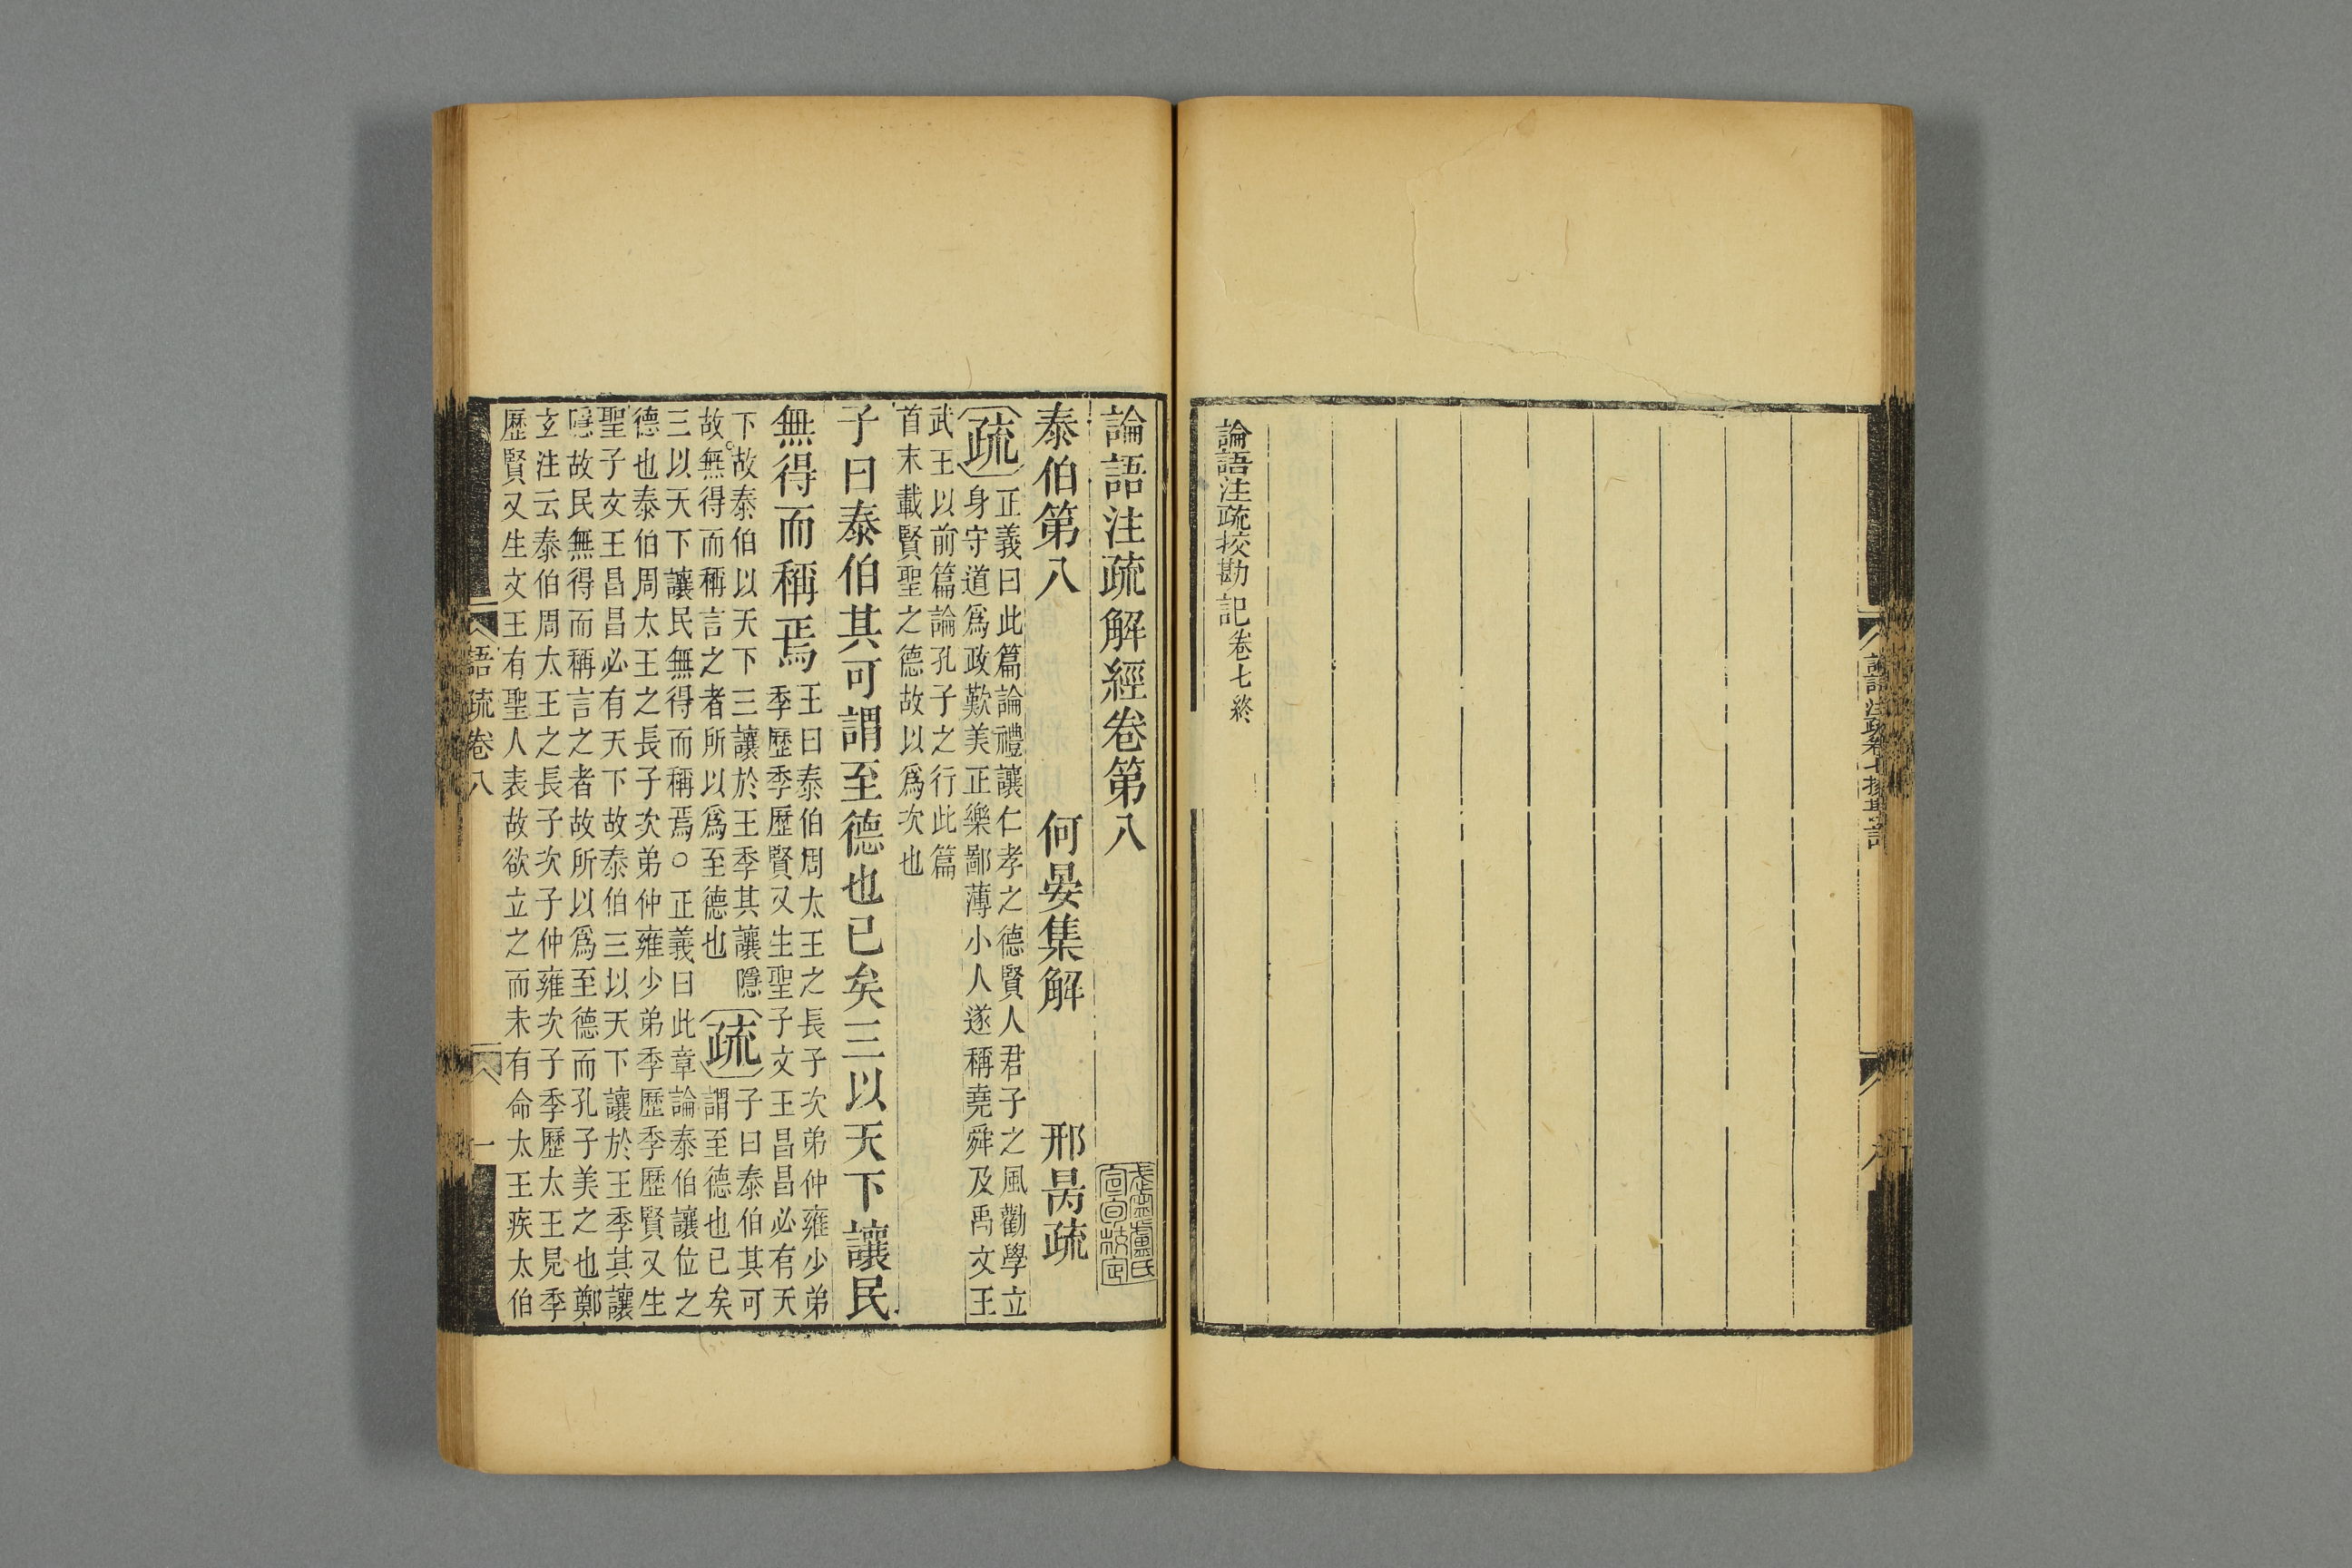 論語注疏卷七挍勘記
論語注疏挍勘記卷七終
論語注疏解經卷第八
武寧盧氏
宣旬挍定
泰伯第八 何晏集解 邢昺疏
疏 正義曰此篇論禮讓仁孝之德賢人君子之風勸學立
身守道爲政歎美正樂鄙薄小人遂稱堯舜及禹文王
武王以前篇論孔子之行此篇
首末載賢聖之德故以爲次也
子曰泰伯其可謂至德也已矣三以天下讓民
無得而稱焉 王曰泰伯周太王之長子次弟仲雍少弟
季歷季歷賢又生聖子文王昌昌必有天
下故泰伯以天下三讓於王季其讓隱
故無得而稱言之者所以爲至德也
疏 子曰泰伯其可
謂至德也已矣
三以天下讓民無得而稱焉○正義曰此章論泰伯讓位之
德也泰伯周太王之長子次弟仲雍少弟季歷季歷賢又生
聖子文王昌昌必有天下故泰伯三以天下讓於王季其讓
隱故民無得而稱言之者故所以爲至德而孔子美之也鄭
玄注云泰伯周太王之長子次子仲雍次子季歷太王見季
歷賢又生文王有聖人表故欲立之而未有命太王疾太伯
語疏卷八 一